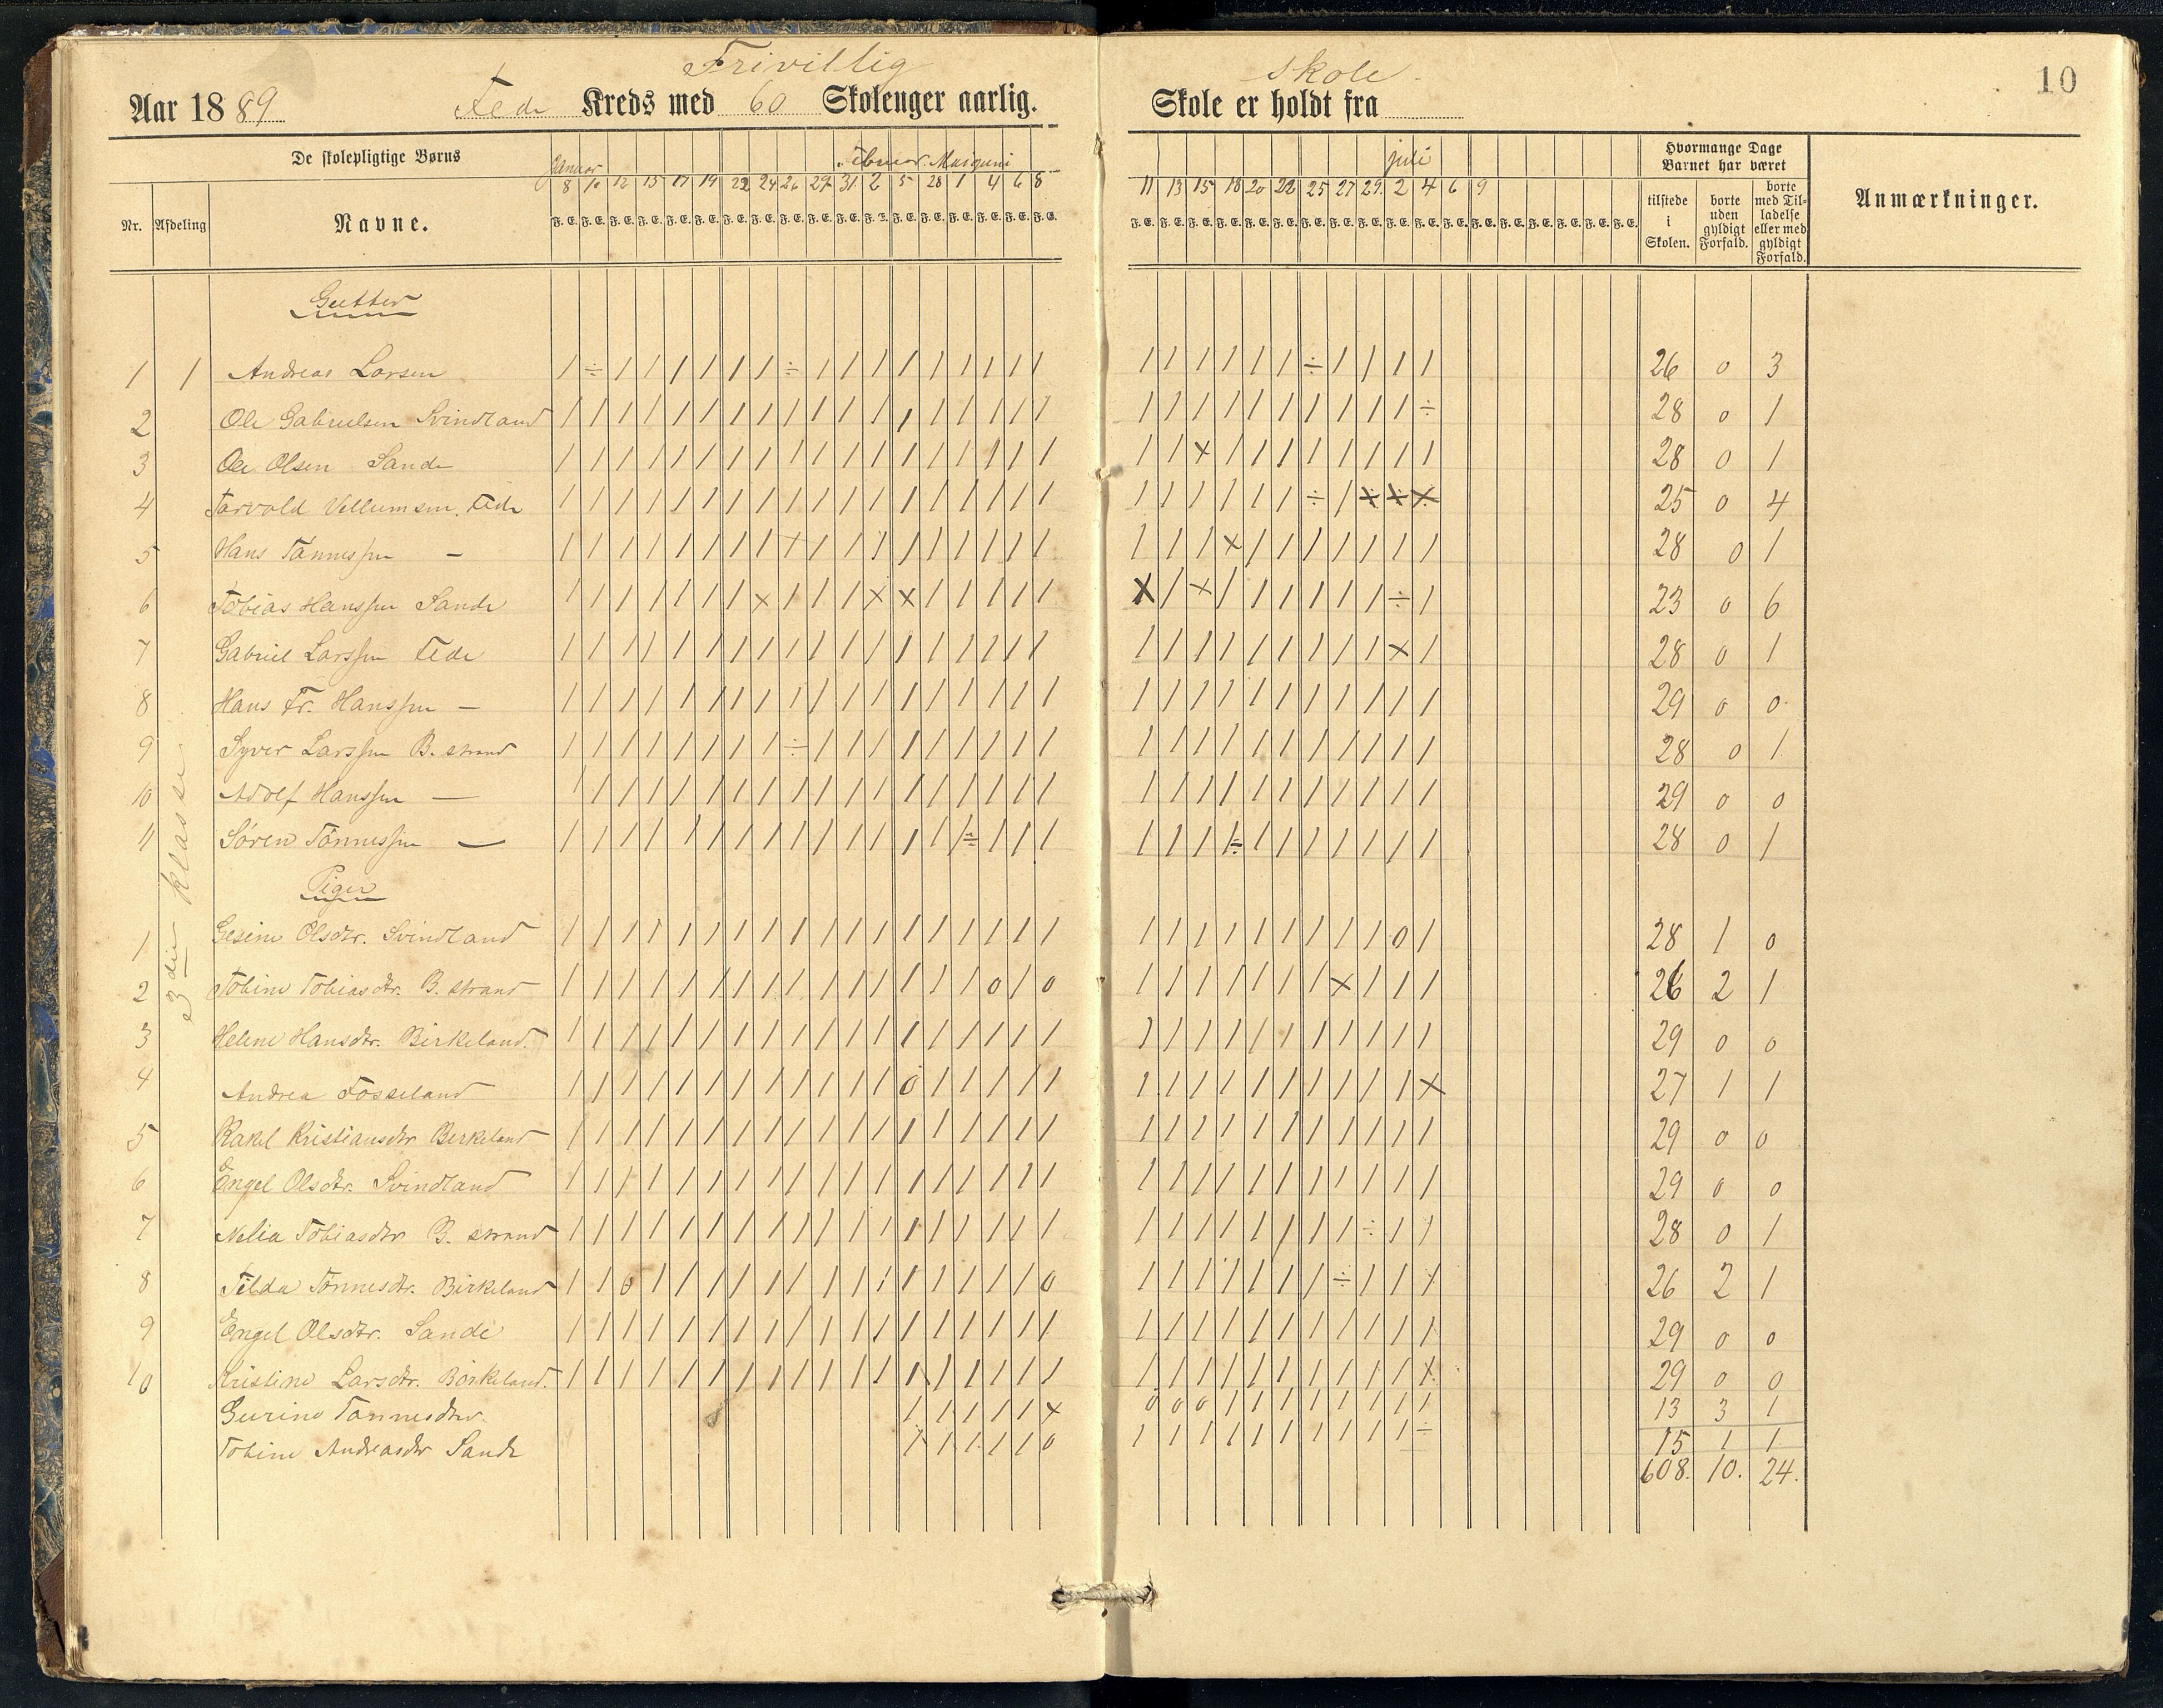 Frivillig skole
10
Aar 1889 Fede Kreds med 60 Skolenger aarlig. Skole er holdt fra
De skolepligtige Børns
Hvormange Dage Barnet har været
Januar Februar. Mai juni juli
8 10 12 15 17 19 22 24 26 29 31 2 5 28 1 4 6 8 11 13 15 18 20 22 25 27 29. 2 4 6 9
Nr. Afdeling Navne. F. E. F. E. F. E. F. E. F. E. F. E. F. E. F. E. F. E. F. E. F. E. F. E. F. E. F. E. F. E. F. E. F. E. F. E. F. E. F. E. F. E. F. E. F. E. F. E. F. E. F. E. F. E. F. E. F. E. F. E. F. E. F. E. F. E. F. E. F. E. F. E. tilstede i Skolen. borte uden gyldigt Forfald. borte med Tilladelse eller med gyldigt Forfald. Anmærkninger.
Gutter
1 1 Andreas Larsen / ÷ / / / / / / ÷ / / / / / / / / / / / / / / / ÷ / / / / 26 0 3
2 Ole Gabrielsen Svindland / / / / / / / / / / / / / / / / / / / / / / / / / / / / ÷ 28 0 1
3 Ole Olsen Sande / / / / / / / / / / / / / / / / / / / / × / / / / / / / / 28 0 1
4 Tarvald Vellumsen. Fede / / / / / / / / / / / / / / / / / / / / / / / / ÷ / × × × 25 0 4
5 Hans Tønnessen — / / / / / / / / + / / / / / / / / / / / / × / / / / / / / 28 0 1
6 Tobias Hanssen Sande / / / / / / / × / / / × × / / / / / × / × / / / / / / ÷ / 23 0 6
7 Gabriel Larssen Fede / / / / / / / / / / / / / / / / / / / / / / / / / / / × / 28 0 1
8 Hans Fr. Hanssen — / / / / / / / / / / / / / / / / / / / / / / / / / / / / / 29 0 0
9 Syver Larssen B. strand / / / / / / / / ÷ / / / / / / / / / / / / / / / / / / / / 28 0 1
10 Adolf Hanssen — / / / / / / / / / / / / / / / / / / / / / / / / / / / / / 29 0 0
11 Søren Tønnessen — / / / / / / / / / / / / / / ÷ / / / / / / ÷ / / / / / / / 28 0 1
Piger
3die klasse
1 Gesine Olsdtr. Svindland / / / / / / / / / / / / / / / / / / / / / / / / / / / 0 / 28 1 0
2 Tobine Tobiasdtr. B. strand / / / / / / / / / / / / / / / 0 / 0 / / / / / / / × / / / 26 2 1
3 Helene Hansdtr. Birkeland. / / / / / / / / / / / / / / / / / / / / / / / / / / / / / 29 0 0
4 Andrea Fosseland / / / / / / / / / / / / 0 / / / / / / / / / / / / / / / × 27 1 1
5 Rakel Kristiansdtr Berkeland / / / / / / / / / / / / / / / / / / / / / / / / / / / / / 29 0 0
6 Engel Olsdtr. Svindland / / / / / / / / / / / / / / / / / / / / / / / / / / / / / 29 0 0
7 Nelia Tobiasdtr B. strand / / / / / / / / / / / / / / / / / / / / / / / / / / ÷ / / 28 0 1
8 Tilda Tønnesdtr. Birkeland / / 0 / / / / / / / / / / / / / / 0 / / / / / / / ÷ / / / 26 2 1
9 Engel Olsdtr. Sande / / / / / / / / / / / / / / / / / / / / / / / / / / / / / 29 0 0
10 Kristine Larsdtr. Birkeland. / / / / / / / / / / / / / / / / / / / / / / / / / / / / / 29 0 0
Gurine Tønnesdtr. / / / / / × 0 0 0 / / / / / / / / 13 3 1
Tobine Andreasdtr Sande / / / / / 0 / / / / / / / / / / ÷ 15 1 1
608. 10. 24.